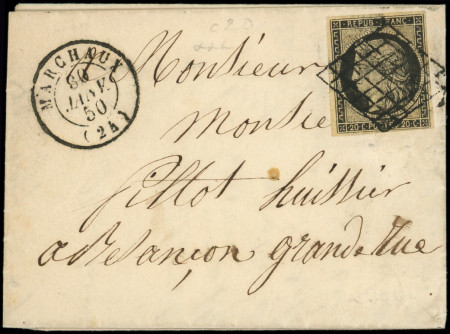 MARCHAUX
30
JANV.
50
(24)
REPUB. FRANC.
20 C. POSTES 20 C.
Monsieur
Monsie
Billot huissier
a Besançon grande Rue